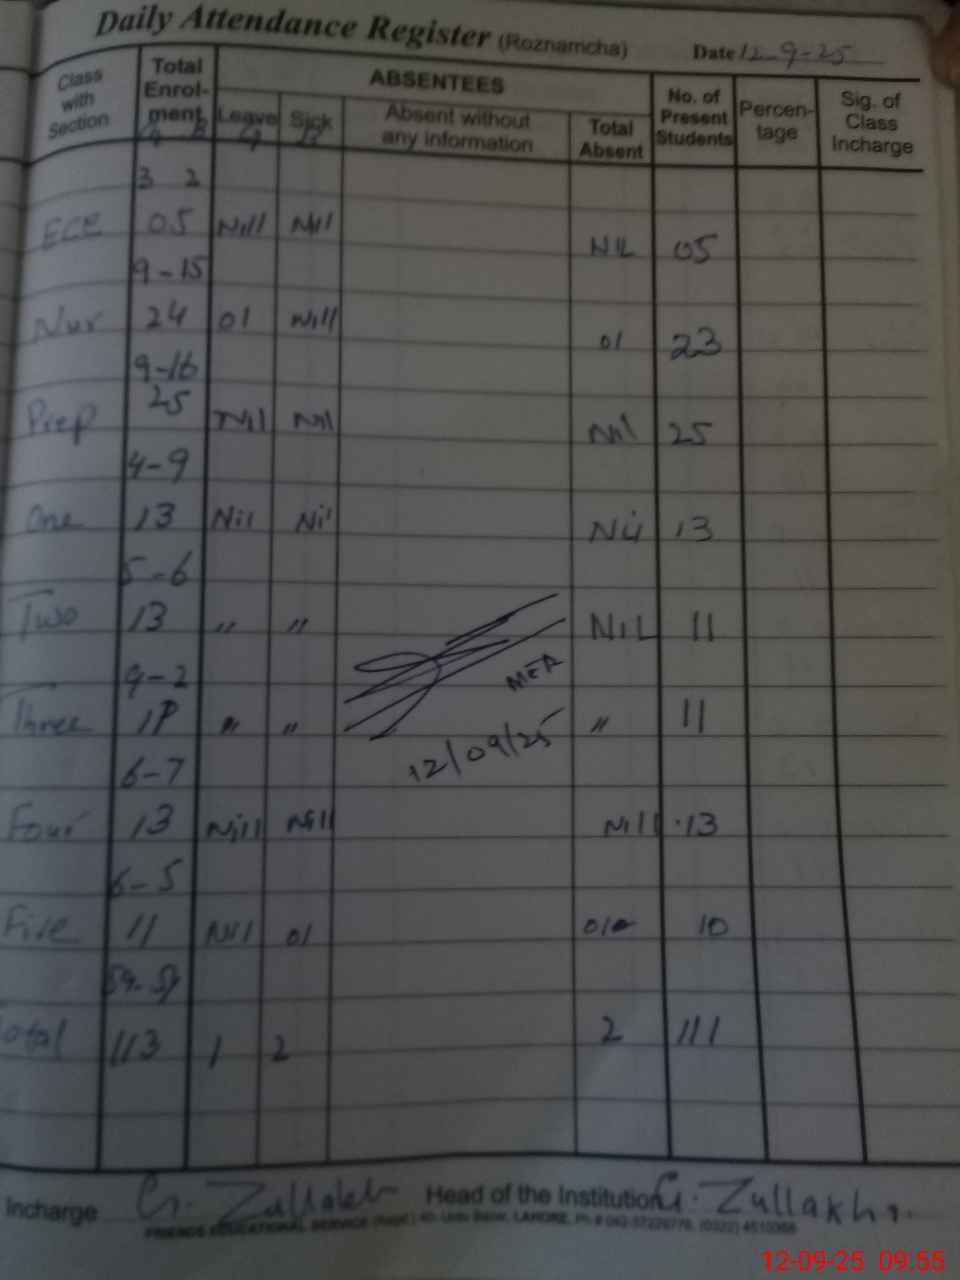 Daily Attendance Register (Roznamcha) Date 12-9-25
Class with Section Total Enrol-ment Leave Sick ABSENTEES Absent without any information Total Absent No. of Present Students Percen-tage Sig. of Class Incharge
3 2
ECE 05 Nill Nil NIL 05
9-15
Nur 24 01 Nill 01 23
9-16
Prep 25 Nil Nil Nil 25
4-9
One 13 Nil Nil Nil 13
5-6
Two 13 " " NIL 11
9-2
MEA
Three " " " 11
12/09/25
6-7
Four 13 Nill Nill Nill 13
6-5
Five 11 Nil 01 01 10
Total 113 1 2 2 111
Incharge Head of the Institution G. Zullakh
FRIENDS EDUCATIONAL SERVICE LAHORE
12-09-25 09:55